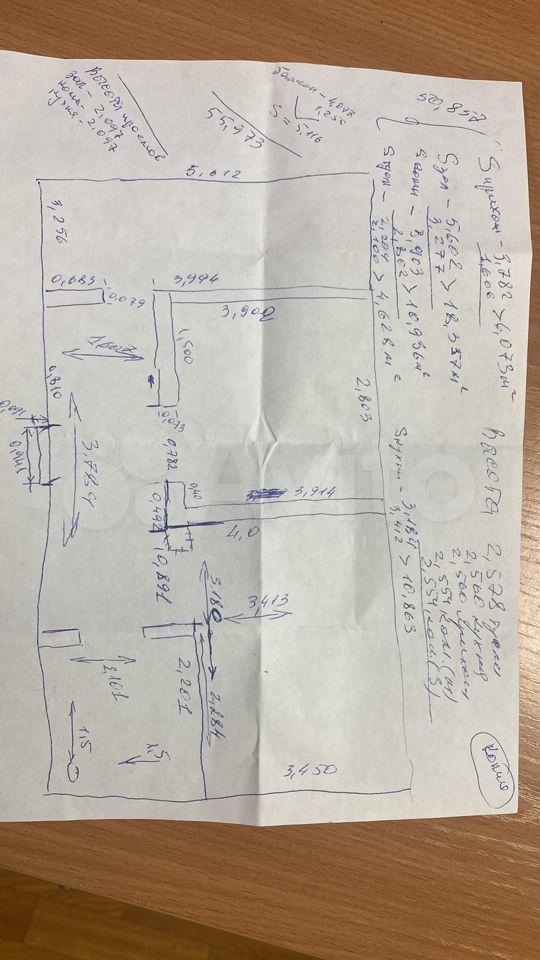 50,857
S прихож - 3,782 > 6,073 м²
1,606
S зал - 5,602 > 18,357 м²
3,277
3,903 > 10,936 м²
2,802
2,204 > 4,628 м²
2,100
S кухни - 3,184 > 10,863
3,412
Высота 2,578
2,560 кухня
2,560
2,554
2,554
копия
Балкон - 4,077
1,255
S = 5,116
55,973
Высоты проемов
зал - 2,097
2,097
кухня - 2,097
5,612
3,256
0,685
0,079
3,994
3,900
1,500
1,607
2,803
0,810
0,941
3,784
0,073
0,782
0,40
3,914
0,492
0,891
4,0
3,180
3,413
2,284
2,201
1,101
1,5
1,5
3,450
Avito